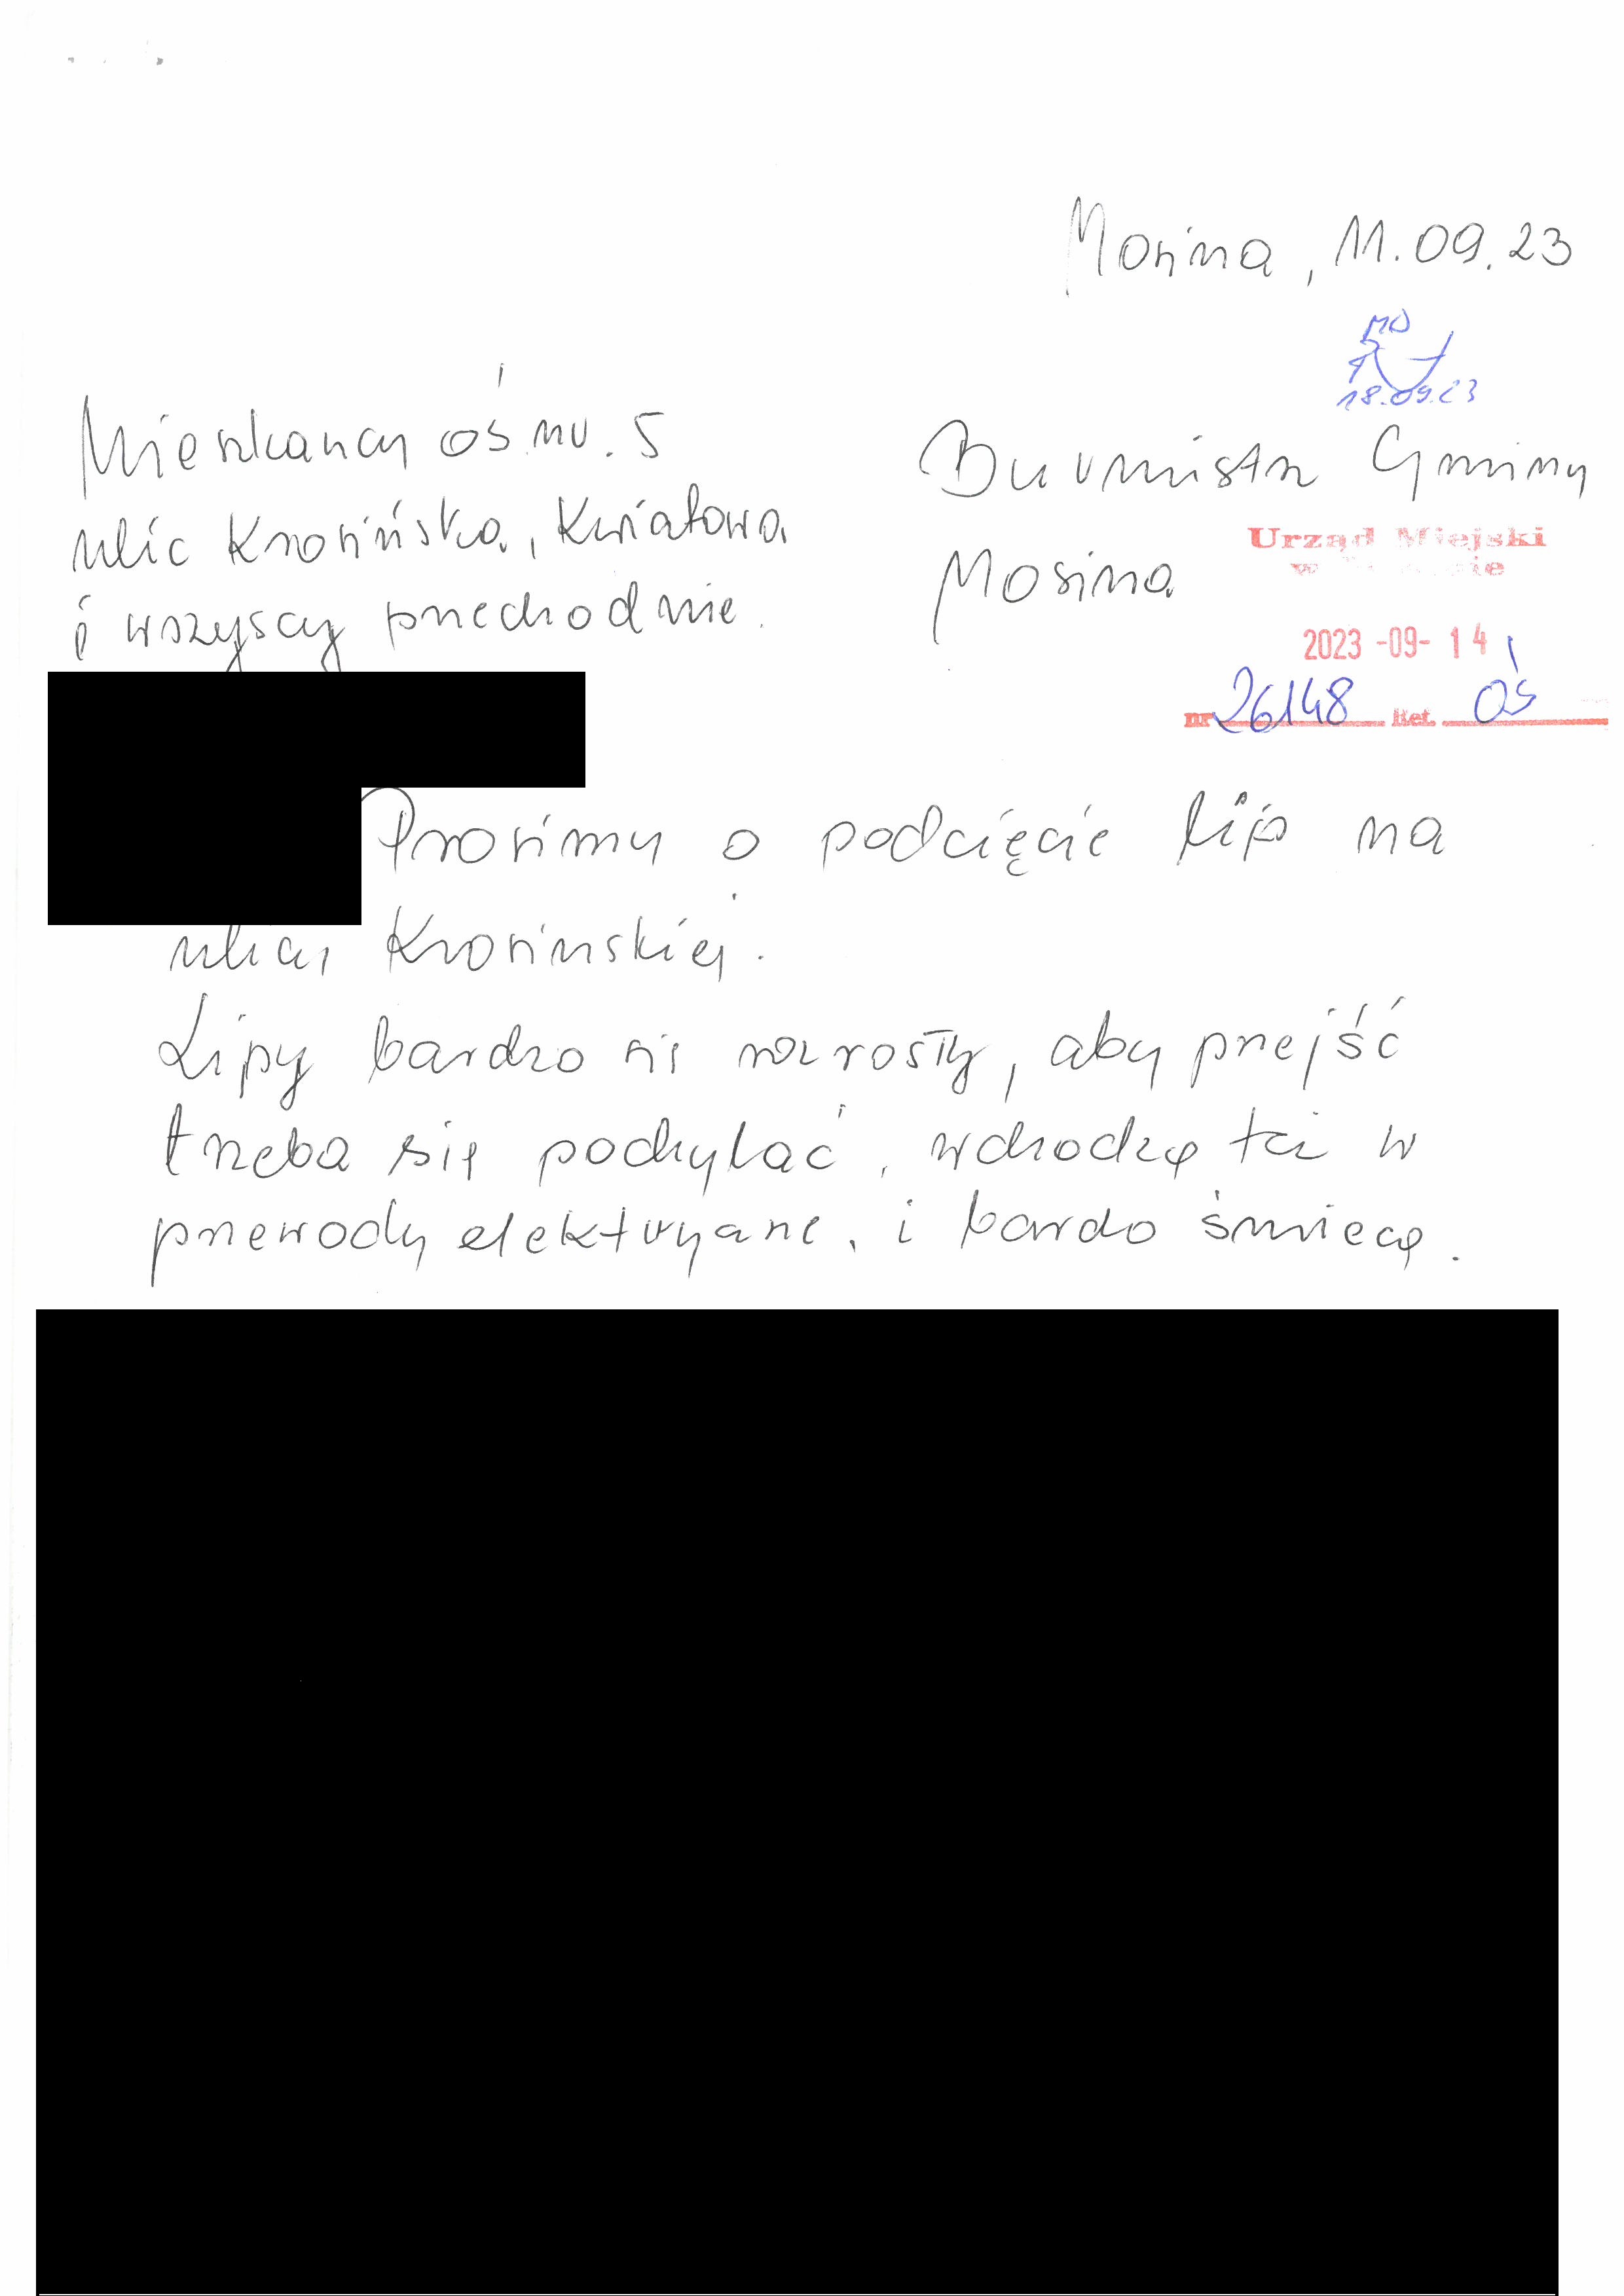 Mosina, 11.09.23
MD
18.09.23
Mieszkańcy oś nr. 5
ulic Krosińska, Kwiatowa
i wszyscy przechodnie.
Burmistrz Gminy
Mosina
Urząd Miejski
w Mosinie
2023 -09- 14
nr 26148 Ref. OŚ
Prosimy o podcięcie lip na
ulicy Krosinskiej.
Lipy bardzo się rozrosły, aby przejść
trzeba się pochylać, wchodzą też w
przewody elektryczne, i bardo śmiecą.